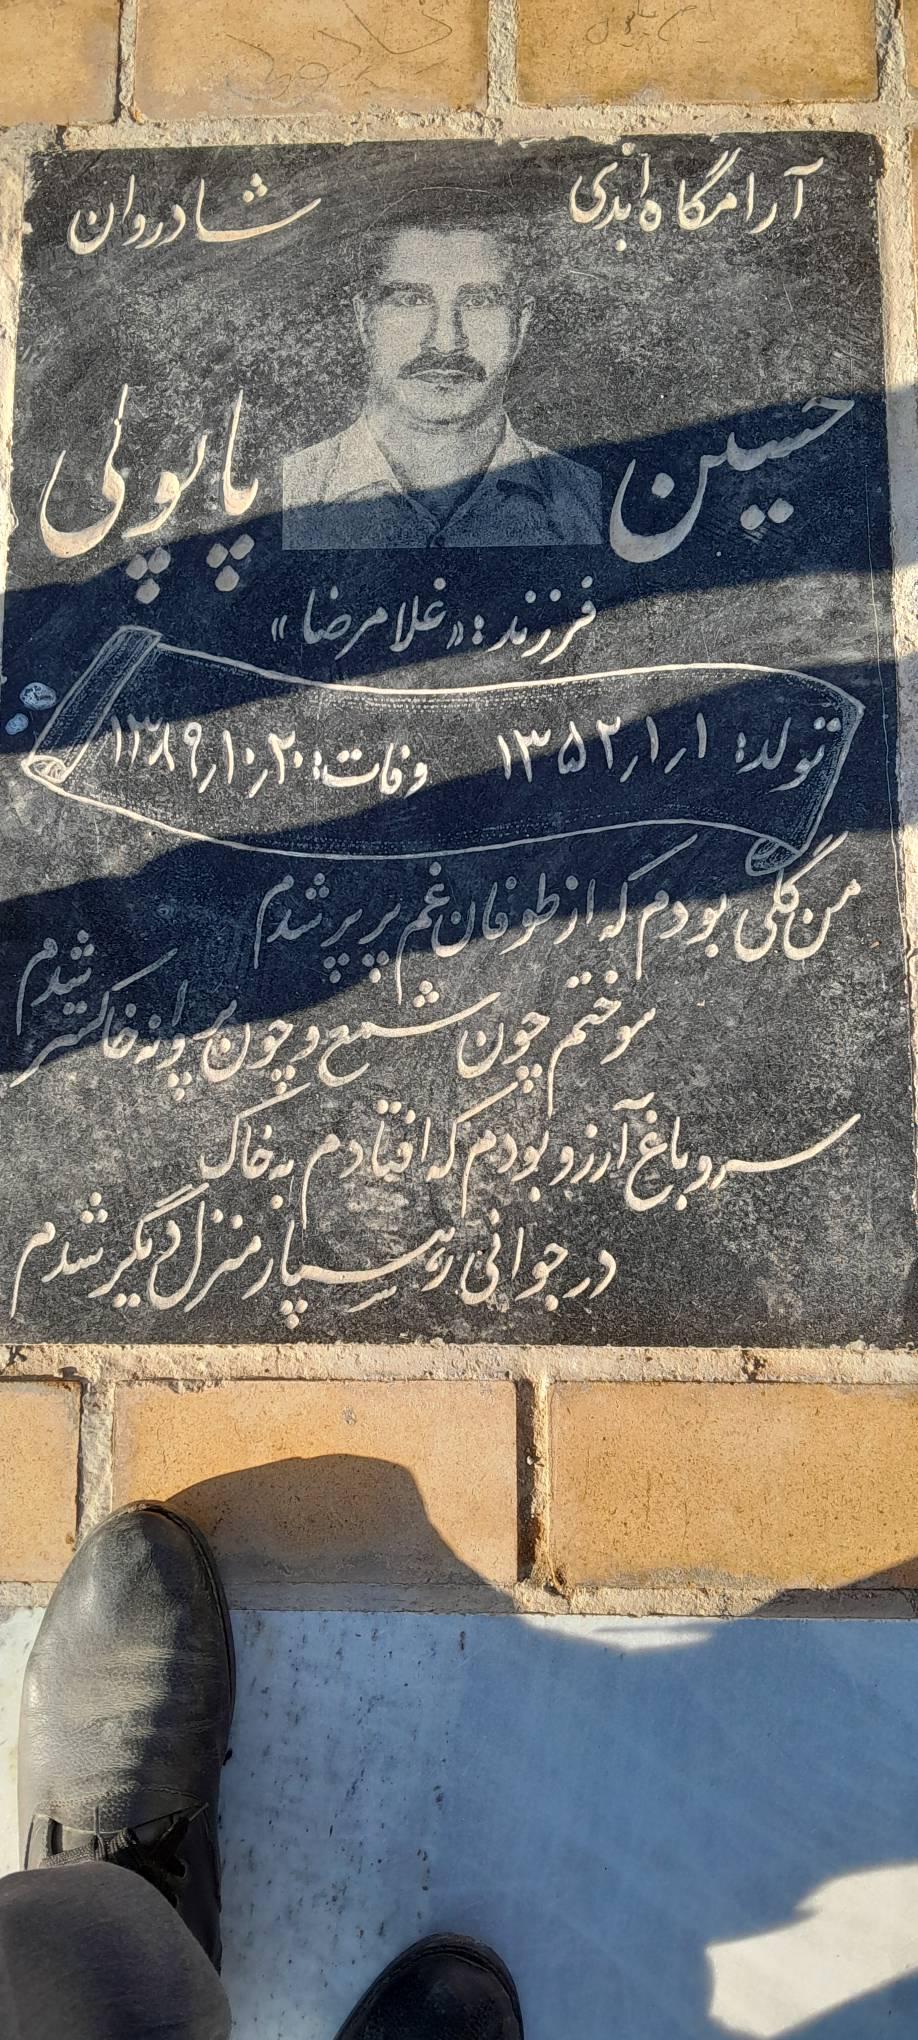 آرامگاه ابدی شادروان
حسین پاپوئی
فرزند: «غلامرضا»
تولد: ۱ر۱ر۱۳۵۲ وفات: ۲۰ر۱۰ر۱۳۸۹
من گلی بودم که از طوفان غم پرپر شدم
سوختم چون شمع و چون پروانه خاکستر شدم
سرو باغ آرزو بودم که افتادم به خاک
در جوانی رهسپار منزل دیگر شدم